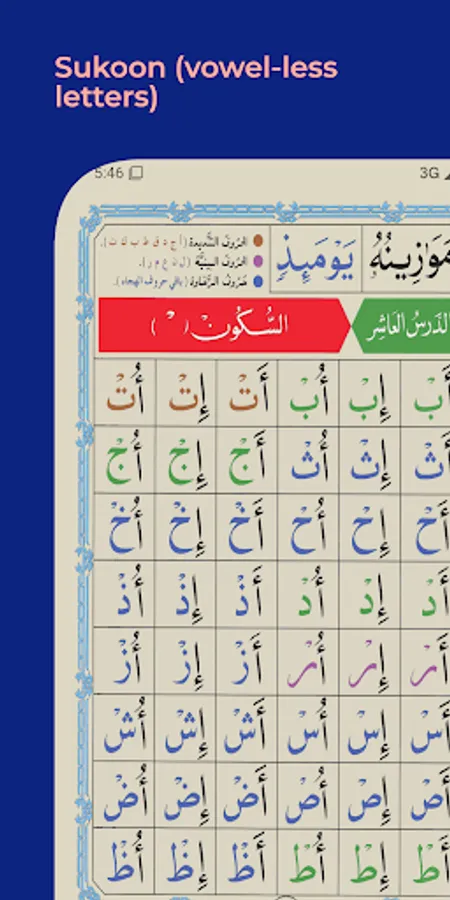 Sukoon (vowel-less
letters)
5:46 3G
مَوَازِينُهُ يَوْمَئِذٍ
الحروف الشديدة ( أ ج د ق ط ب ك ت ).
الحروف البينية ( ل ن ع م ر ).
حروف الرخاوة ( باقي حروف الهجاء ).
الدَّرسُ العَاشِر السُّكُونْ ( ْ )
أَبْ إِبْ أُبْ أَتْ إِتْ أُتْ
أَثْ إِثْ أُثْ أَجْ إِجْ أُجْ
أَحْ إِحْ أُحْ أَخْ إِخْ أُخْ
أَدْ إِدْ أُدْ أَذْ إِذْ أُذْ
أَرْ إِرْ أُرْ أَزْ إِزْ أُزْ
أَسْ إِسْ أُسْ أَشْ إِشْ أُشْ
أَصْ إِصْ أُصْ أَضْ إِضْ أُضْ
أَطْ إِطْ أُطْ أَظْ إِظْ أُظْ